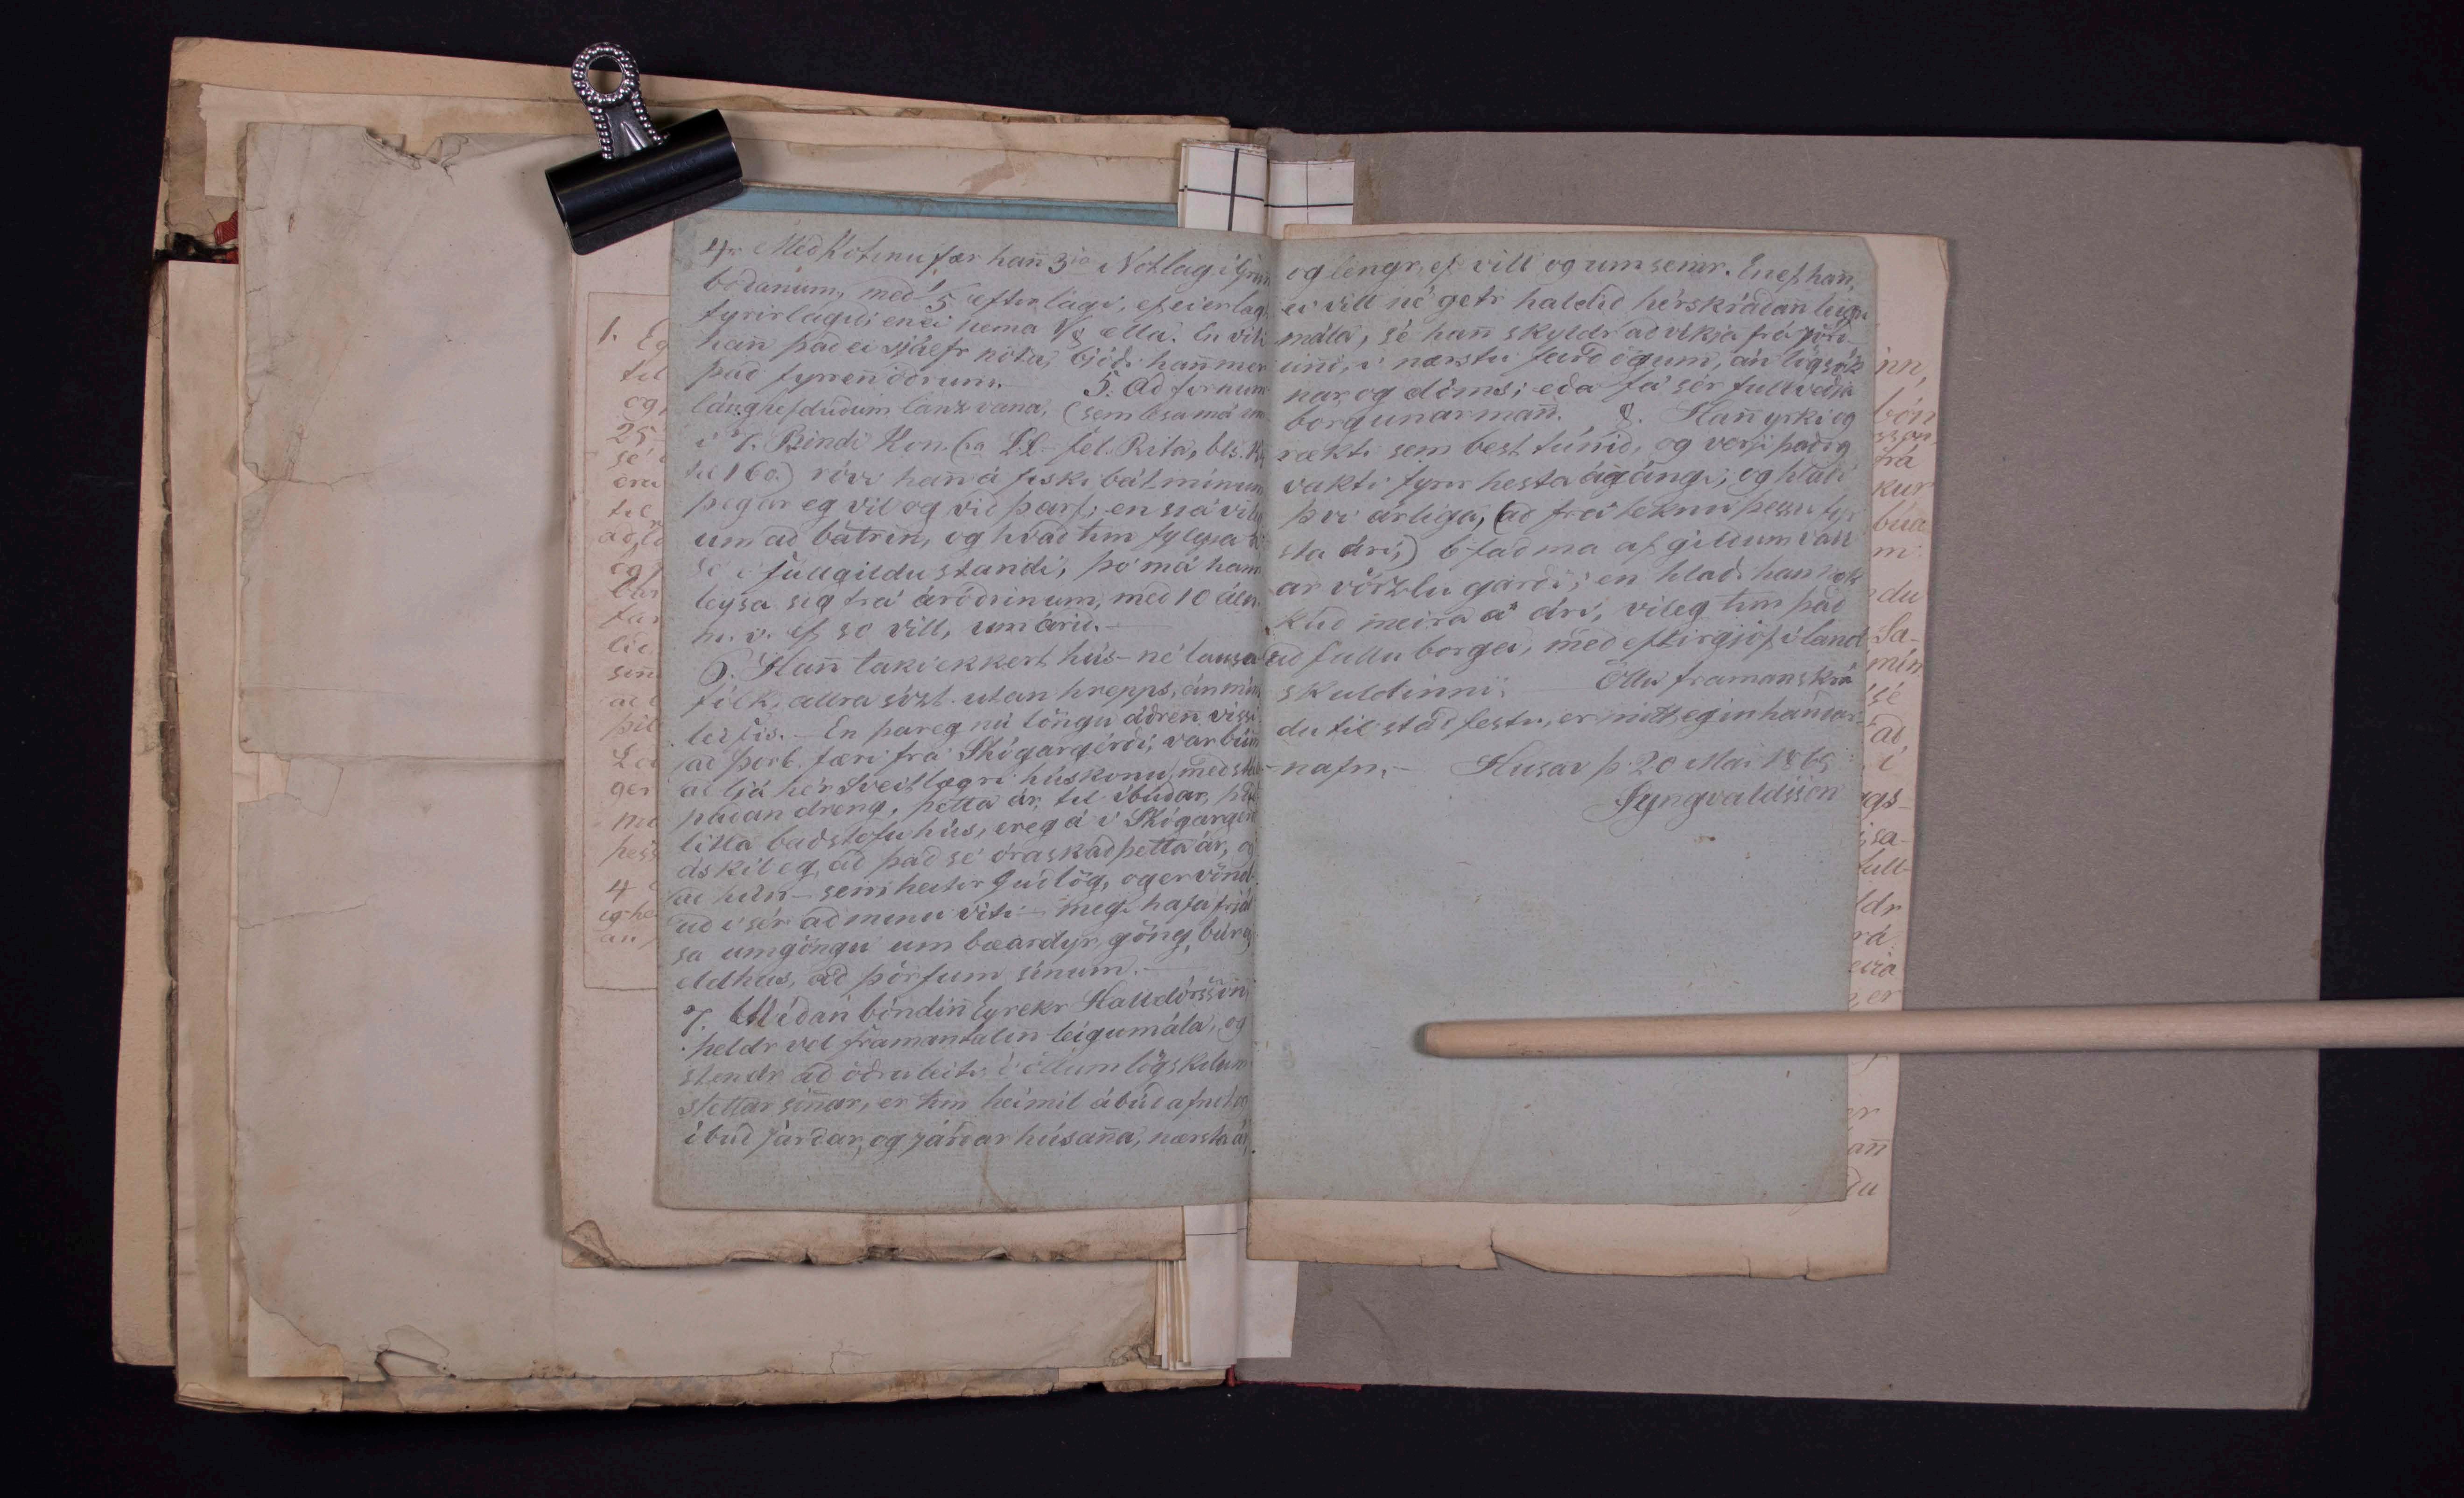 4. Með Kotinu fær hann 3ia Notlag í
boðanum, með 1/5 efterlagi, ef eierlag
fyrirlagði; en ei nema 1/8 ella. En vili
hann það ei sjálfr nota, bjóði hann mer
það fyrr en öðrum. — 5. Að fornum
lánghefdudum lanz vana, (sem lesa má um
í 7. Bindi Kon. LL. fel. Rita, bls.
til 160.) rói hann á fiski bát mínum
þegar eg vil og við þarf; en sjá vil eg
um að bátrin, og hvað hm fylgja
sé í fullgildu standi, þó má hann
leysa sig frá áróðrinum, með 10 áln.
m. v. ef so vill, um árið. —
6. Hann taki ekkert hús- né lausa
fólk, allra sízt utan hrepps, án míns
leifis. — En þareg nú löngu áðren vissi
að Þorb. færi frá Skógargérði, var búinn
að ljá hér Sveitlægri húskonu, með
paðan dreng, þetta ár, til íbúðar, það
litla baðstofuhús, ereg á í Skógargerði
áskil eg, að það sé óraskað þetta ár, og
að hún — sem heitir Guðlög, og er vönd-
uð í sér að mínu viti — megi hafa frjál
sa umgöngu um bæardyr, göng, búr og
eldhús, að þörfum sínum. —
7. Meðan bóndinn Tyrekr Halldórsson
heldr vel framantalin leigumála, og
stendr að öðru leiti í öllum lögskilum
stettar sinnar, er hm heimil ábúð afnot og
íbúð jarðar, og jarðar húsanna, nærsta ár,
og lengr, ef vill og um semr. En ef hann,
ei vill né getr haldið hérskráðan leigu
mála, sé hann skyldr að víkja frá jörð-
unni, í nærstu fardögum, án lögsók
nar og dóms; eða fá sér fullveðja
borgunarmann. 8. Hann yrki og
rækti sem best túnið, og verji það og
vakti fyrir hesta ágángi; og hlaði
því árliga, (að frá teknu þessu fyr
sta ári,) 6 faðma af gildum vall
ar vörzlu garði; en hlaði hann nok
kuð meira á ári, vil eg hm það
að fullu borga, með eftirgjöf í land
skuldinni. Öllu framanskrá
du til staðfestu, er mitt eginhandar-
-nafn. — Húsav. þ. 20 Mai 1865